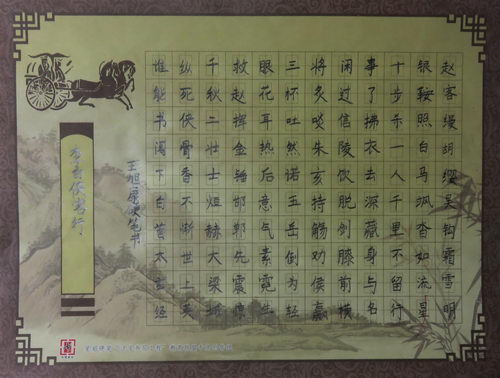 赵客缦胡缨吴钩霜雪明
银鞍照白马飒沓如流星
十步杀一人千里不留行
事了拂衣去深藏身与名
闲过信陵饮脱剑膝前横
将炙啖朱亥持觞劝侯嬴
三杯吐然诺五岳倒为轻
眼花耳热后意气素霓生
救赵挥金锤邯郸先震惊
千秋二壮士烜赫大梁城
纵死侠骨香不惭世上英
谁能书阁下白首太玄经
王旭硬笔书
李白侠客行